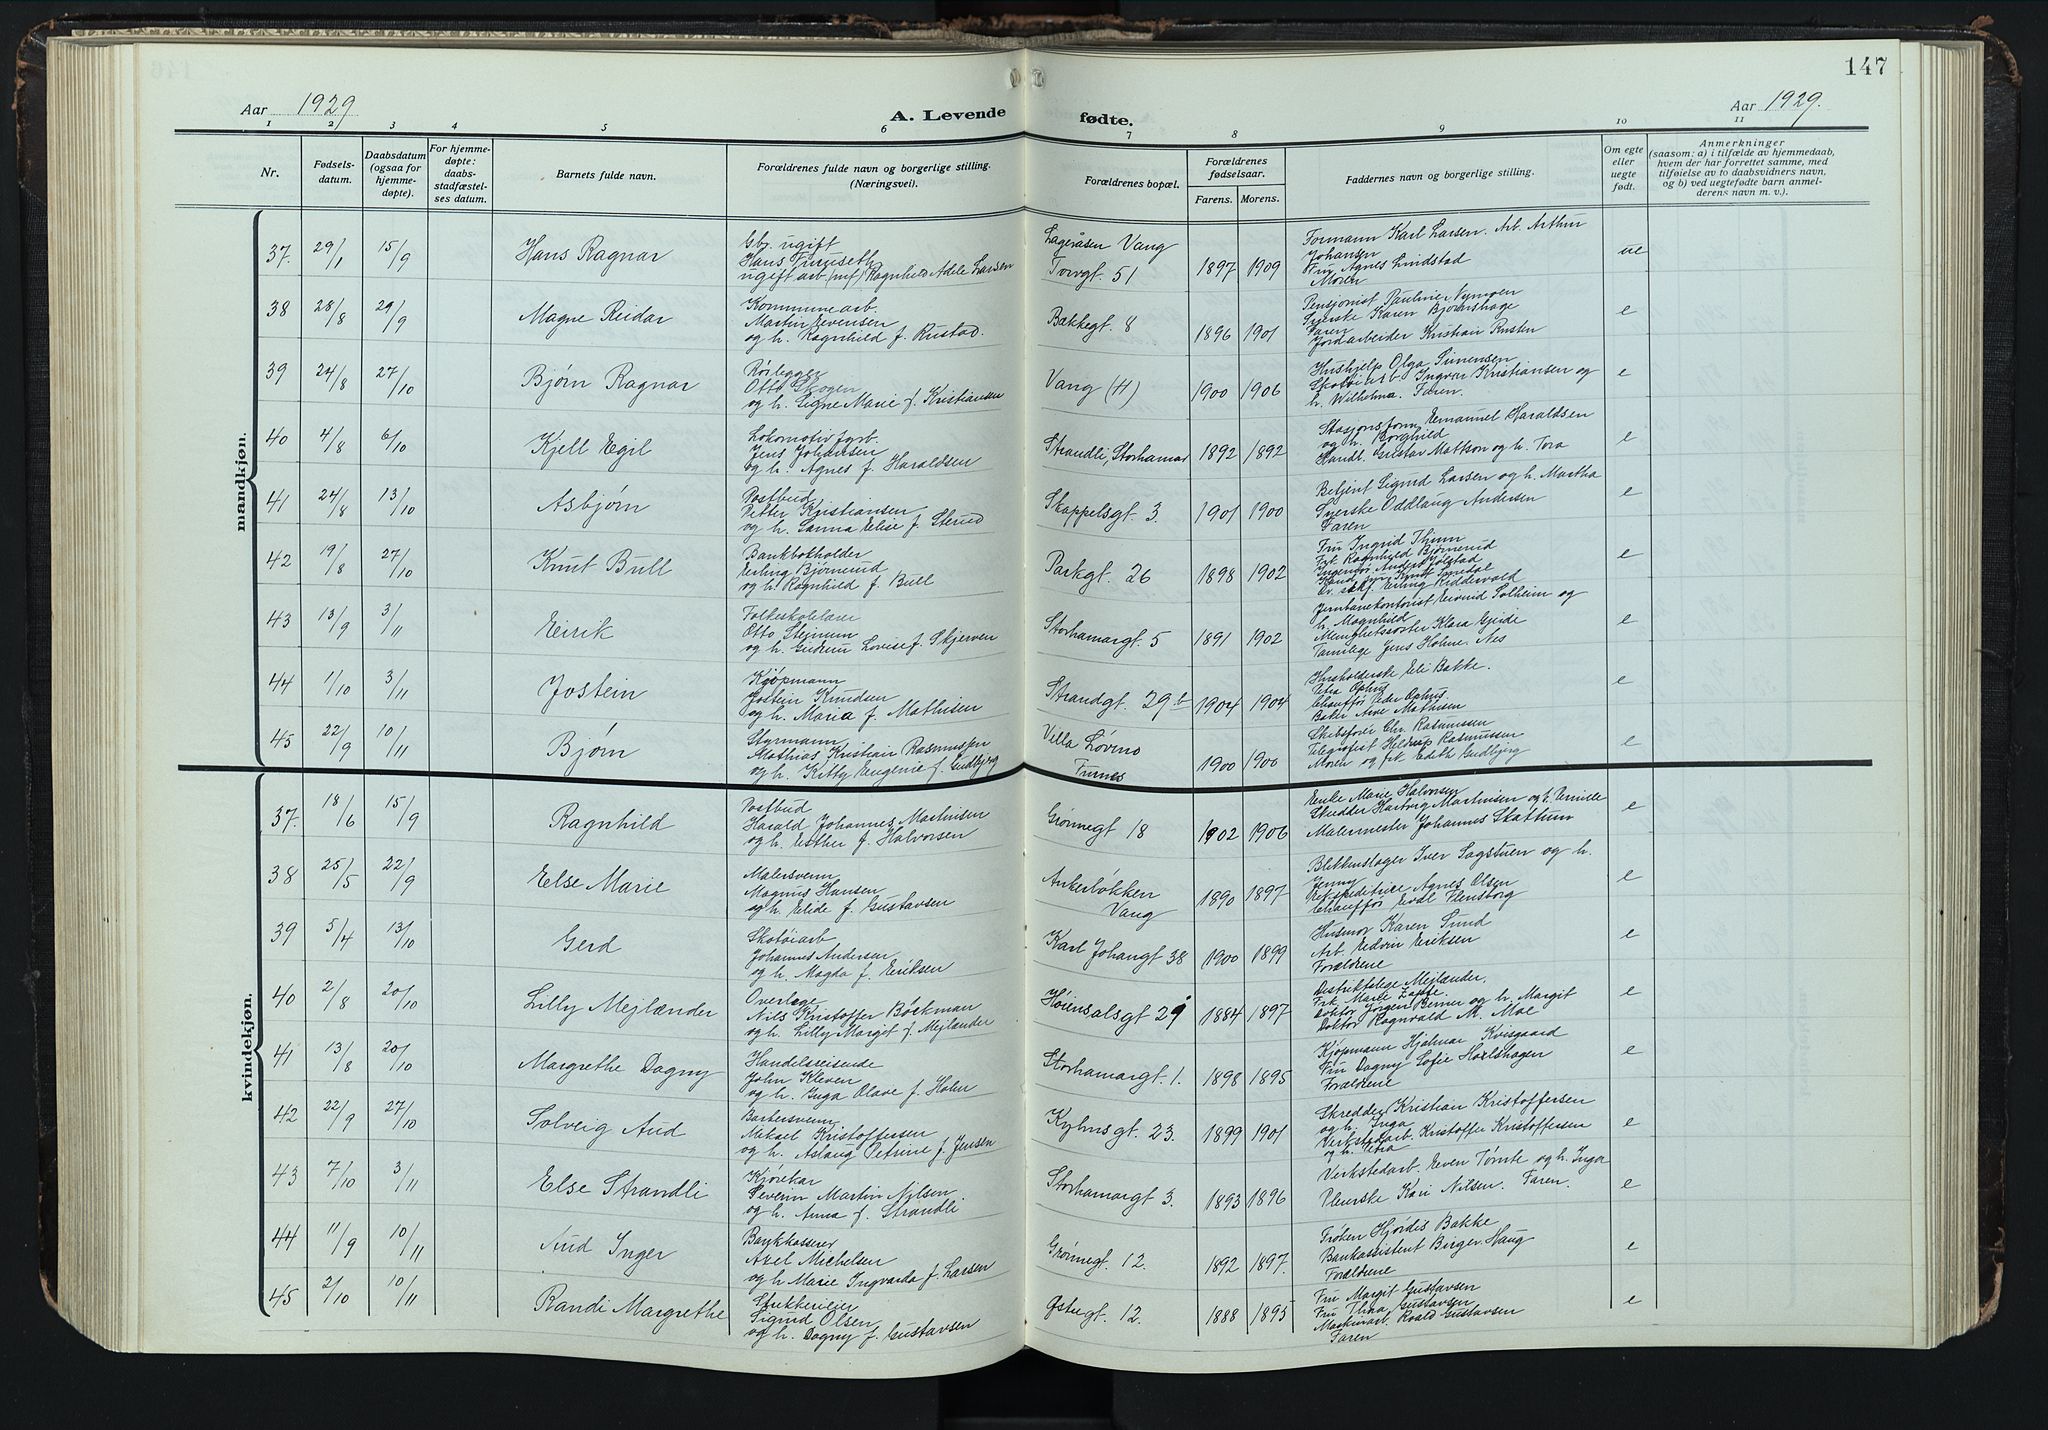 147
Aar 1929
A. Levende fødte.
Aar 1929.
1 2 3 4 5 6 7 8 9 10 11
Nr.
Fødsels-
datum.
Daabsdatum
(ogsaa for
hjemme-
døpte).
For hjemme-
døpte:
daabs-
stadfæstel-
ses datum.
Barnets fulde navn.
Forældrenes fulde navn og borgerlige stilling.
(Næringsvei).
Forældrenes bopæl.
Forældrenes
fødselsaar.
Farens. Morens.
Faddernes navn og borgerlige stilling.
Om egte
eller
uegte
født.
Anmerkninger
(saasom: a) i tilfælde av hjemmedaab,
hvem der har forrettet samme, med
tilføielse av to daabsvidners navn,
og b) ved uegtefødte barn anmel-
derens navn m. v.).
mandkjøn.
37. 29/1 15/9 Hans Ragnar
Gbr. ugift
Hans Furuseth
ugift arb (mf) Ragnhild Adele Larsen
Lageråsen Vang
Torvgt. 51
1897 1909
Formann Karl Larsen. Arb. Arthur
Johansen
Fru Agnes Lindstad
Moren
ue
38 28/8 29/9 Magne Reidar
Kommunearb.
Martin Evensen
og h. Ragnhild f. Rustad.
Bakkegt. 8
1896 1901
Pensjonist Pauline Nymoen
Syerske Karen Bjørnshage
Faren
Jordarbeider Kristian Rusten
e
39 24/8 27/10 Bjørn Ragnar
Rørlegger
Otto Skogen
og h. Signe Marie f. Kristiansen
Vang (H)
1900 1906
Hushjelp Olga Simensen
Skotøiarb. Ingvar Kristiansen og
h. Wilhelma. Faren.
e
40 4/8 6/10 Kjell Egil
Lokomotivfyrb.
Jens Johansen
og h. Agnes f. Haraldsen
Strandli, Storhamar
1892 1892
Stasjonsform. Emanuel Haraldsen
og h. Borghild
Handl. Gustav Matson og h. Tora
e
41 24/8 13/10 Asbjørn
Postbud
Petter Kristiansen
og h. Sanna Elise f. Sterud
Skappelsgt. 3.
1901 1900
Betjent Sigurd Larsen og h. Martha
Syerske Oddlaug Andersen
Faren
e
42 19/8 27/10 Knut Bull
Bankbokholder
Erling Bjørnerud
og h. Ragnhild f. Bull
Parkgt. 26
1898 1902
Fru Ingrid Thum
Frk. Ragnhild Bjørnerud
Ingeniør Anders
Erling Ridderwold
e
43 13/9 3/11 Eirik
Folkeskolelærer
Otto Stejnum
og h. Gudrun Lovise f. Skjerven
Storhamargt. 5
1891 1902
Jernbanekontorist Eivind Solheim og
h. Magnhild
Menighetssøster Klara Eide
Tannlege Jens Holme. Nes
e
44 1/10 3/11 Jostein
Kjøpmann
Jostein Knudsen
og h. Maria f. Mathisen
Strandgt. 29 b
1904 1904
Husholderske Eli Bakke.
Petra Ophus
Chauffør Peder Ophus.
Baker Arne Mathisen
e
45 22/9 10/11 Bjørn
Styrmann
Mathias Kristian Rasmussen
og h. Kitty Eugenie f. Gudbjerg
Villa Løvmo
Furnes
1900 1900
Skibsfører Chr. Rasmussen
Telegrafist Hildrup Rasmussen
Moren og frk Edith Gudbjerg
e
kvindekjøn.
37. 18/6 15/9 Ragnhild
Postbud
Harald Johannes Martinsen
og h. Esther f. Halvorsen
Grønnegt 18
1902 1906
Enke Marie Halvorsen
Skredder Hartvig Martinsen og h. Pernille
Malermester Johannes Skattum
e
38 25/5 22/9 Else Marie
Malersvenn
Magnus Hansen
og h. Elide f. Gustavsen
Ankerløkken
Vang
1890 1897
Blikkenslager Iver Sagstuen og h.
Jenny
Ekspeditrice Agnes Olsen
Chauffør Flensborg
e
39 5/4 13/10 Gerd
Skotøiarb
Johannes Andersen
og h. Magda f. Eriksen
Karl Johangt 38
1900 1899
Husmor Karen Sund
Arb. Edvin Eriksen
Forældrene
e
40 2/8 20/10 Lilly Mejlænder
Overlæge
Nils Kristoffer Böckman
og h. Lilly Margit f. Mejlænder
Høiensalsgt 29
1884 1897
Distriktslege Mejlænder.
Frk. Marie Zappe.
Doktor Jørgen Berner og h. Margit
Doktor Ragnvald M. Moe
e
41 13/8 20/10 Margrethe Dagny
Handelsreisende
John Kleven
og h. Inga Olave f. Holm
Storhamargt. 1.
1898 1895
Kjøpmann Hjalmar Kvisgaard
Fru Dagny Sofie Horlshagen
Forældrene
e
42 22/9 27/10 Solveig Aud
Barbersvenn
Mikael Kristoffersen
og h. Aslaug Petrine f. Jensen
Kyhnsgt. 23.
1899 1901
Skredder Kristian Kristoffersen
og h. Inga
Verkstedarb. Kristoffer Kristoffersen
og h. Petra
e
43 7/10 3/11 Else Strandli
Kjørekar
Severin Martin Nilsen.
og h. Anna f. Strandli
Storhamargt 3.
1893 1896
Verkstedarb. Even Tømte og h. Inga
Pleierske Kari Nilsen. Faren.
e
44 11/9 10/11 Aud Inger
Bankkasserer
Axel Michelsen
og h. Marie Ingvarda f. Larsen
Grønnegt. 12.
1892 1897.
Frøken Hjørdis Bakke
Bankassistent Birger Haug
Forældrene
e
45 2/10 10/11 Randi Margrethe
Slakterieier
Sigurd Olsen
og h. Dagny f. Gustavsen
Østregt. 12.
1888 1895
Fru Margit Gustavsen
Fru Thea Gustavsen
Maskinarb. Roald Gustavsen
Faren
e